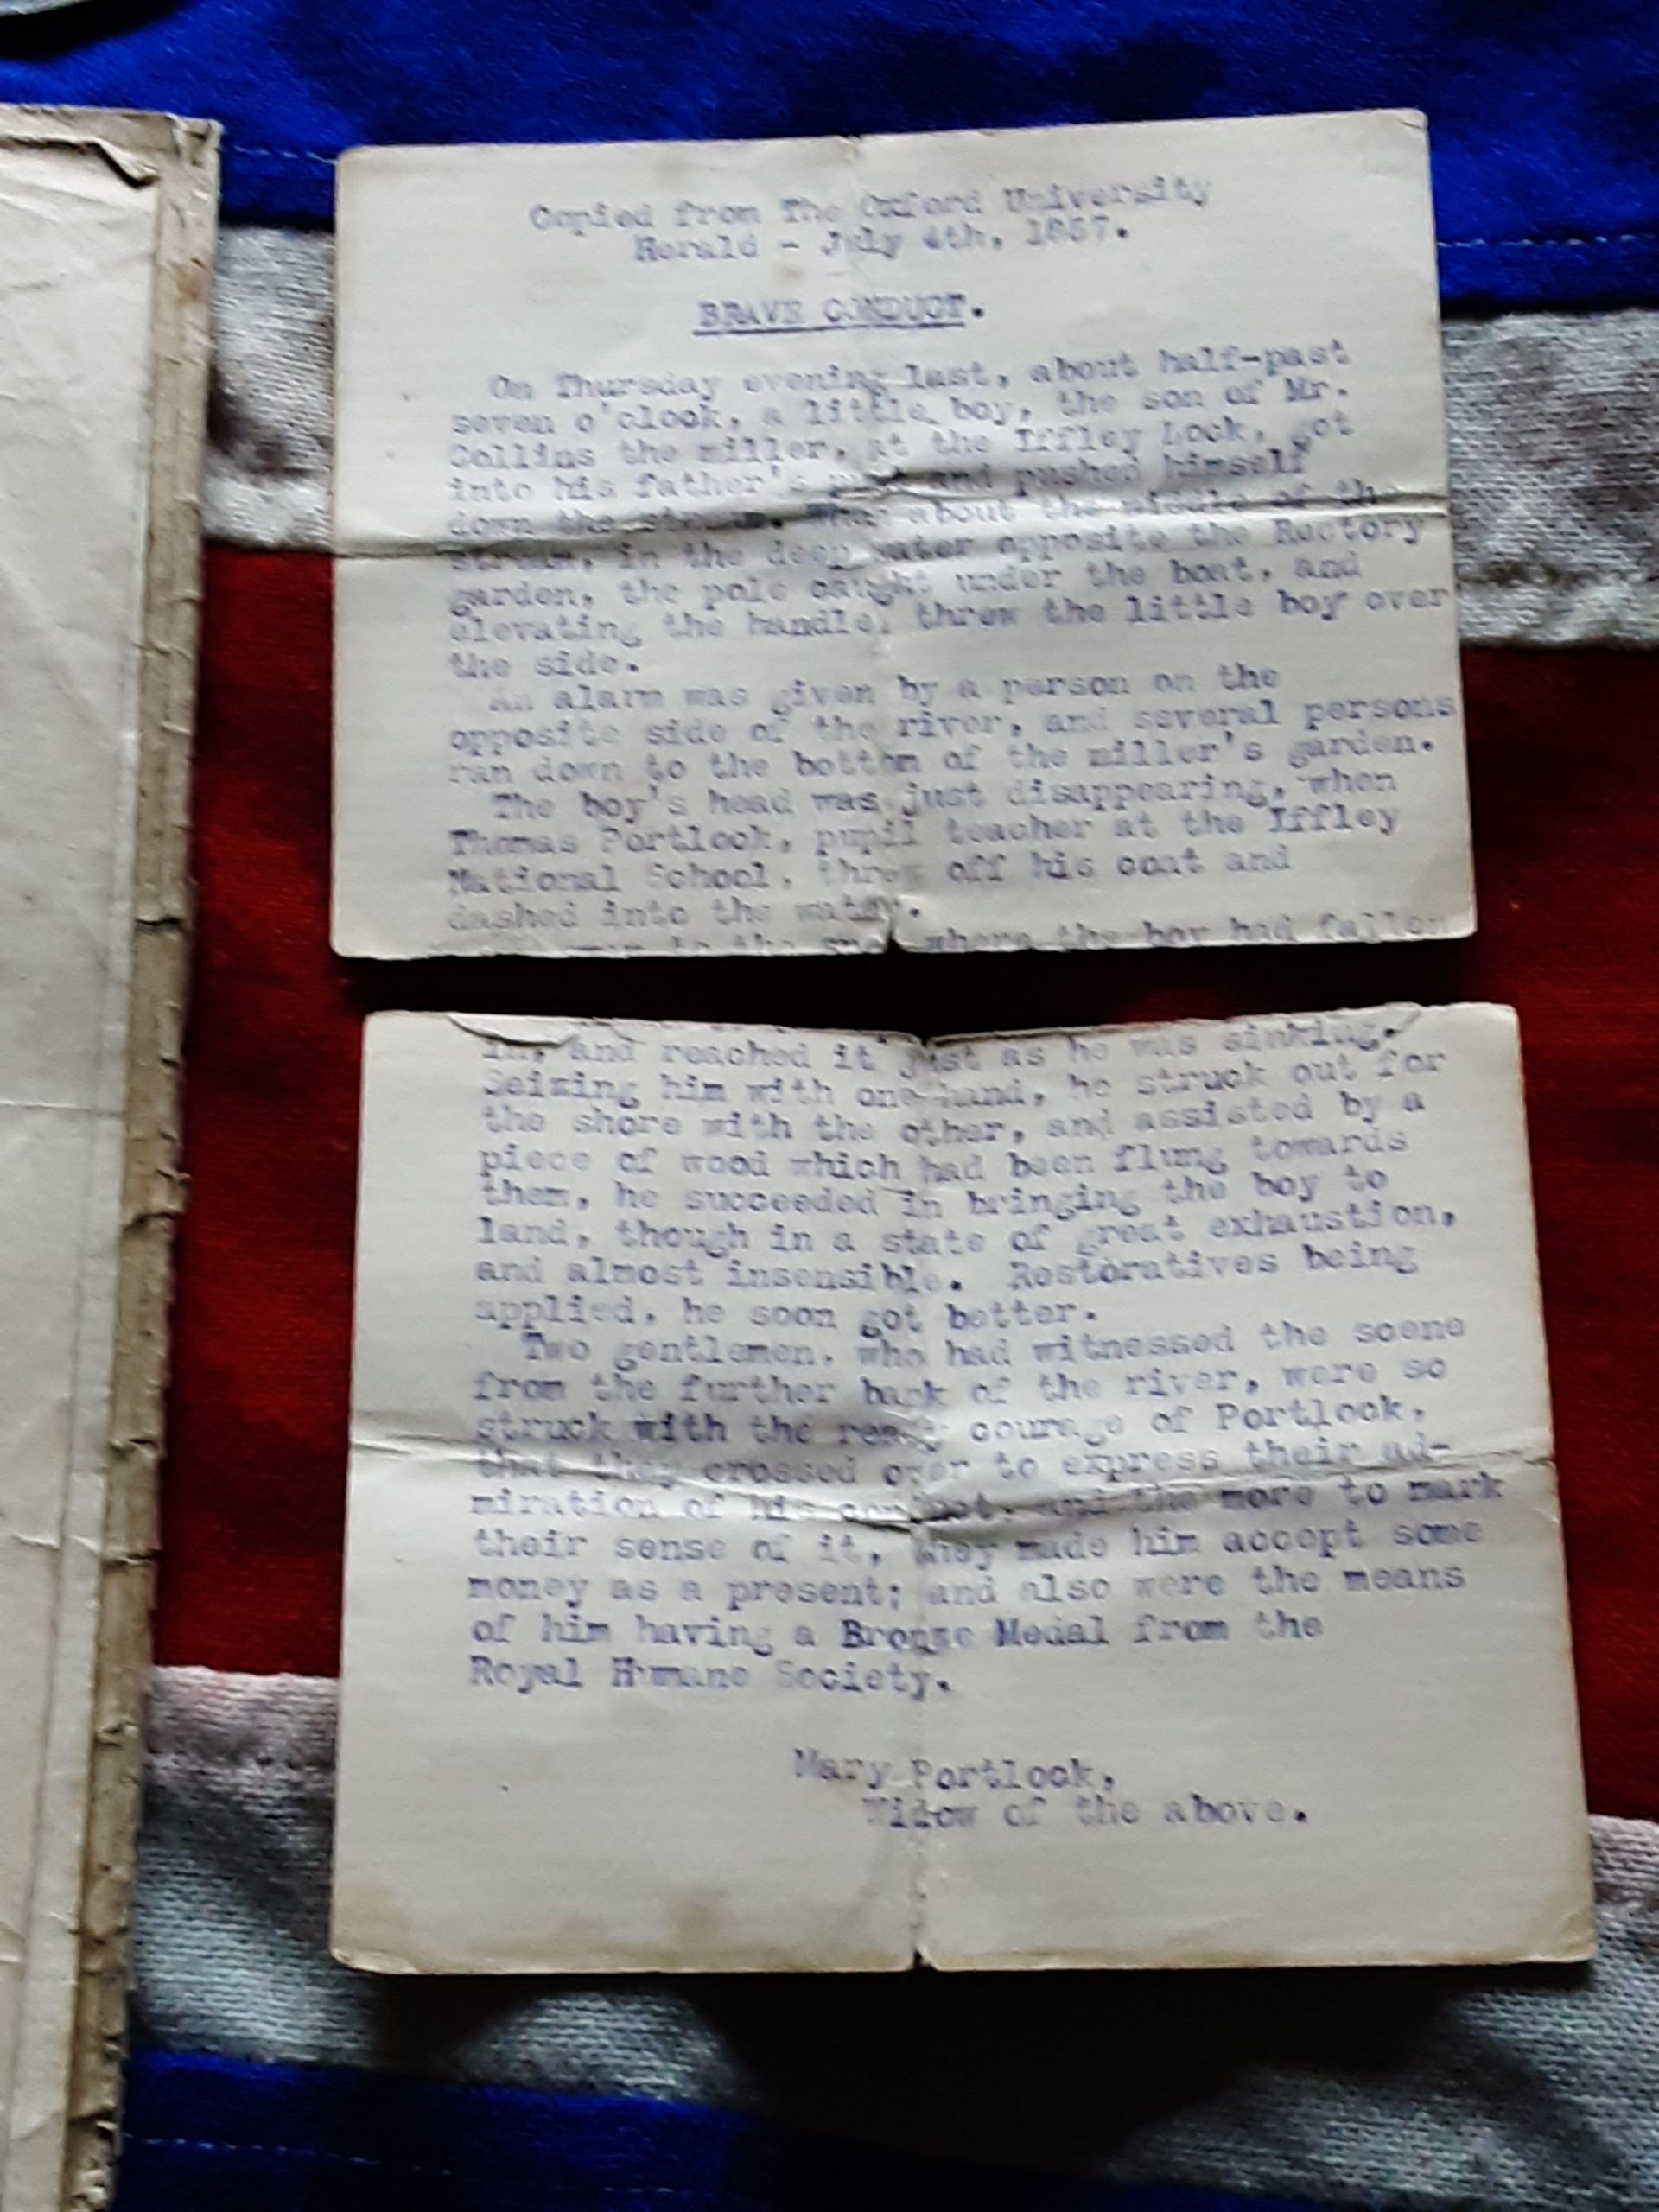 Copied from The Oxford University
Herald - July 4th, 1857.
BRAVE CONDUCT.
On Thursday evening last, about half-past
seven o'clock, a little boy, the son of Mr.
Collins the miller, at the Iffley Lock, got
into his father's punt and pushed himself
down the stream. When about the middle of the
stream, in the deep water opposite the Rectory
garden, the pole caught under the boat, and
elevating the handle, threw the little boy over
the side.
An alarm was given by a person on the
opposite side of the river, and several persons
ran down to the bottom of the miller's garden.
The boy's head was just disappearing, when
Thomas Portlock, pupil teacher at the Iffley
National School, threw off his coat and
dashed into the water.
to the spot where the boy had fallen
in, and reached it just as he was sinking.
Seizing him with one hand, he struck out for
the shore with the other, and assisted by a
piece of wood which had been flung towards
them, he succeeded in bringing the boy to
land, though in a state of great exhaustion,
and almost insensible. Restoratives being
applied, he soon got better.
Two gentlemen, who had witnessed the scene
from the further bank of the river, were so
struck with the ready courage of Portlock,
that they crossed over to express their ad-
miration of his conduct, and the more to mark
their sense of it, they made him accept some
money as a present; and also were the means
of him having a Bronze Medal from the
Royal Humane Society.
Mary Portlock,
Widow of the above.